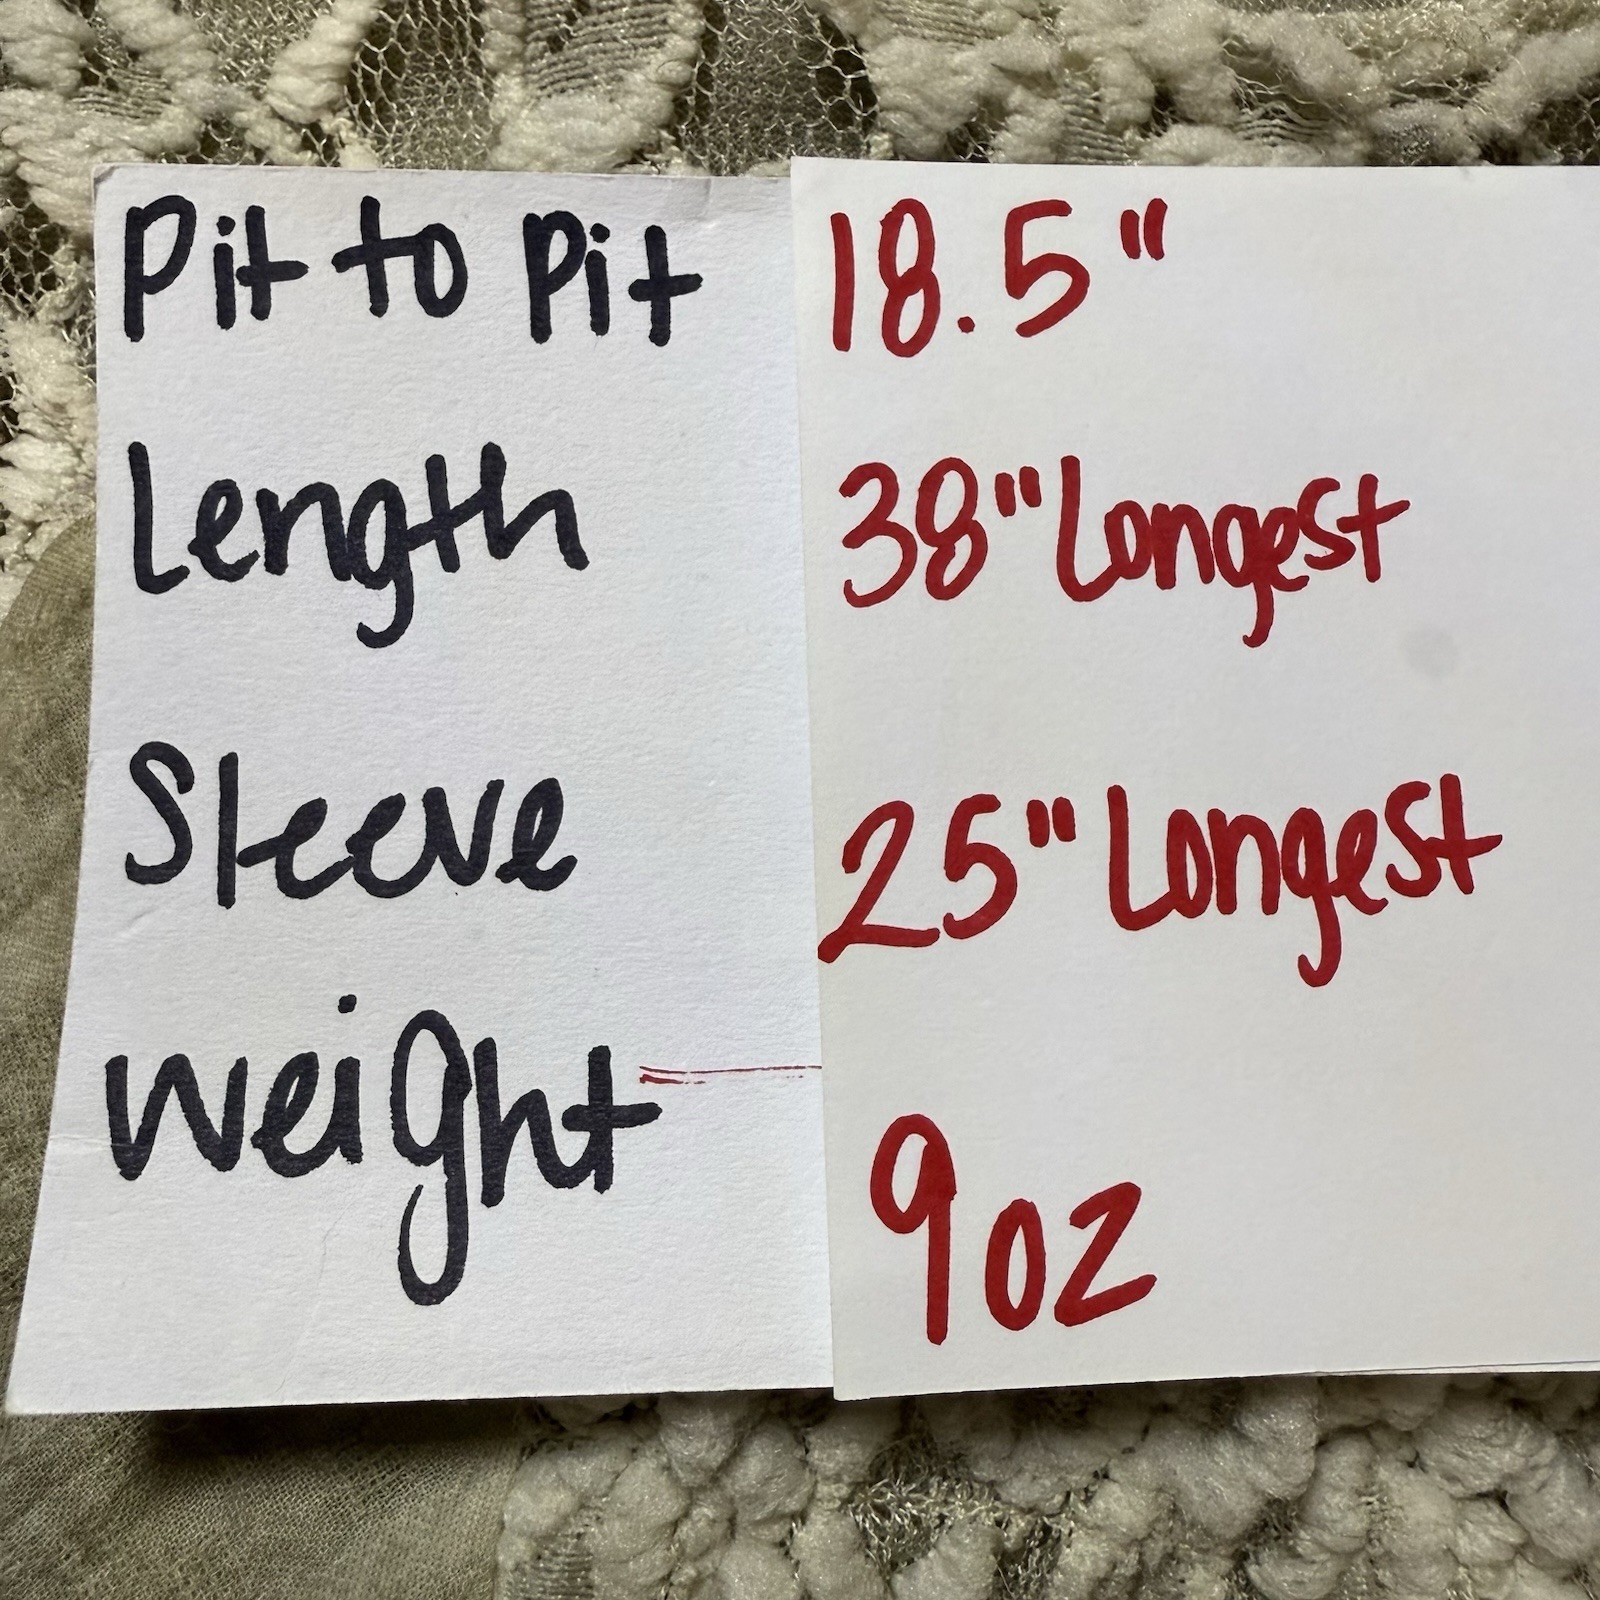 Pit to Pit 18.5"
Length 38" Longest
Sleeve 25" Longest
weight 9oz